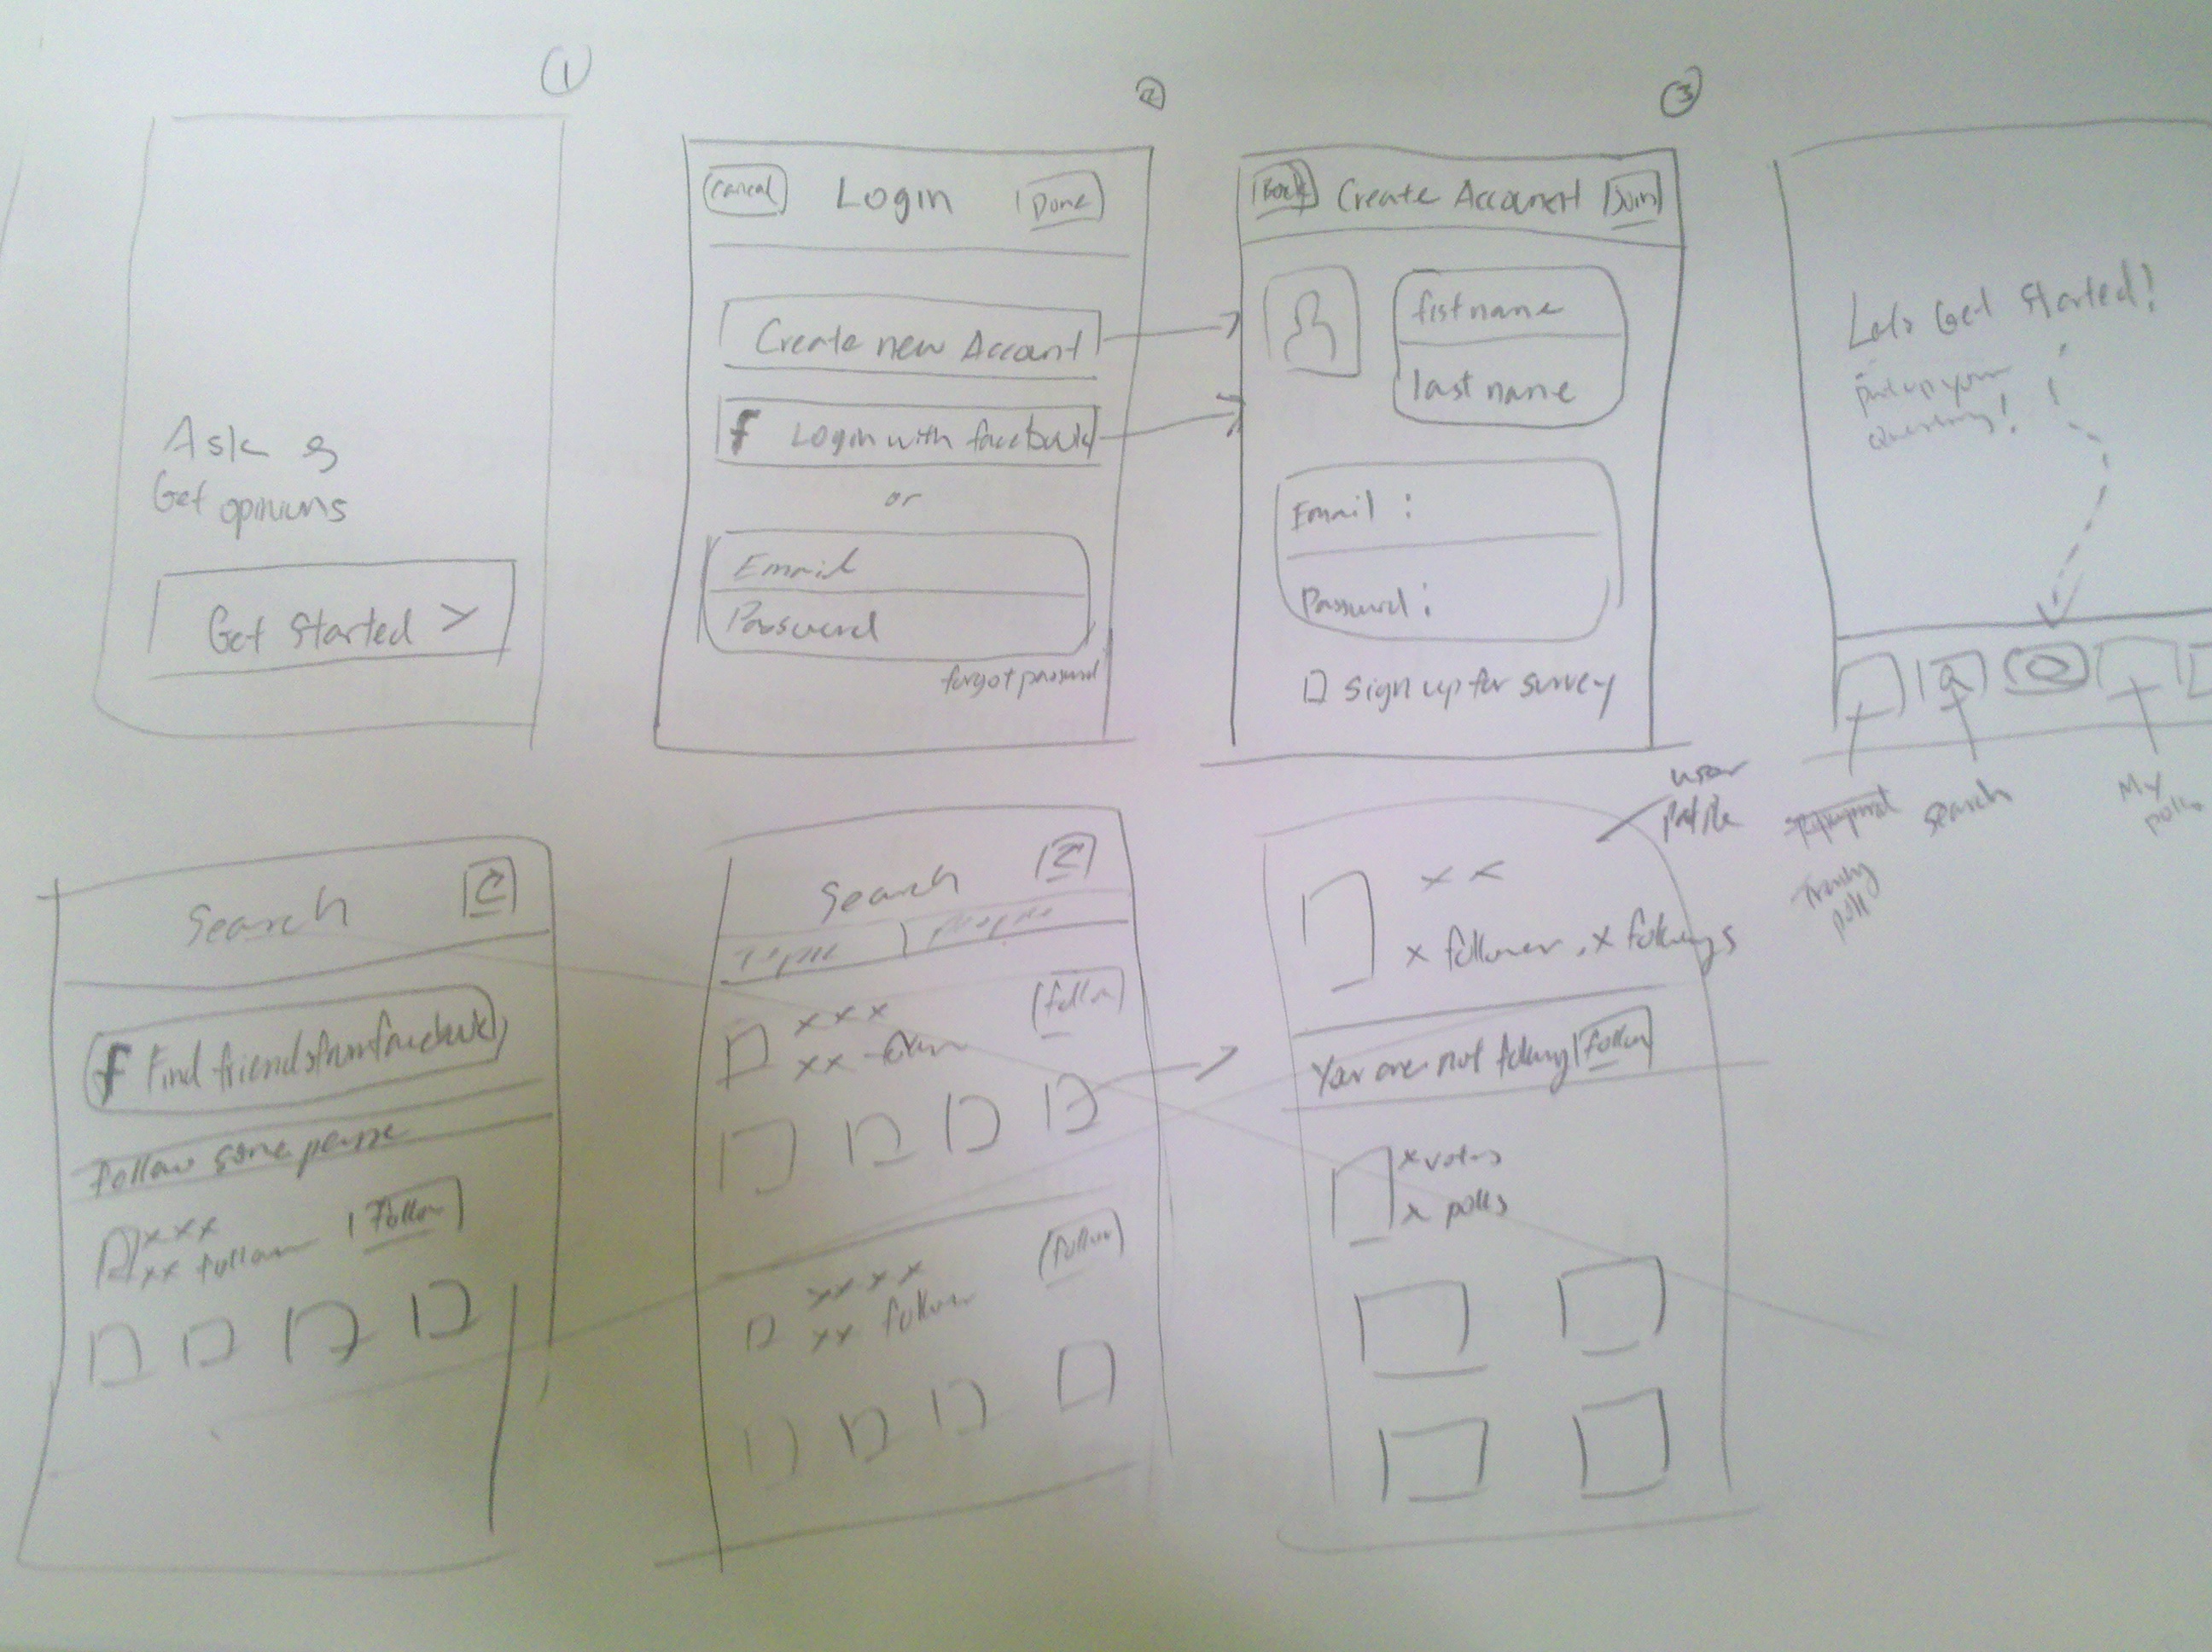 1
Ask &
Get opinions
Get Started >
2
Cancel Login Done
Create new Account
f Login with facebook
or
Email
Password
forgot password
3
Back Create Account Join
fistname
last name
Email :
Password :
Sign up for survey
Lets Get Started!
put up your
search
My
polls
Search
f Find friends from facebook
Follow some
xxx
xx follower Follow
Search
people
xxx Follow
xx
xxxx Follow
xx follower
user
profile
xx
x follower . x followings
You are not following Follow
x votes
x polls